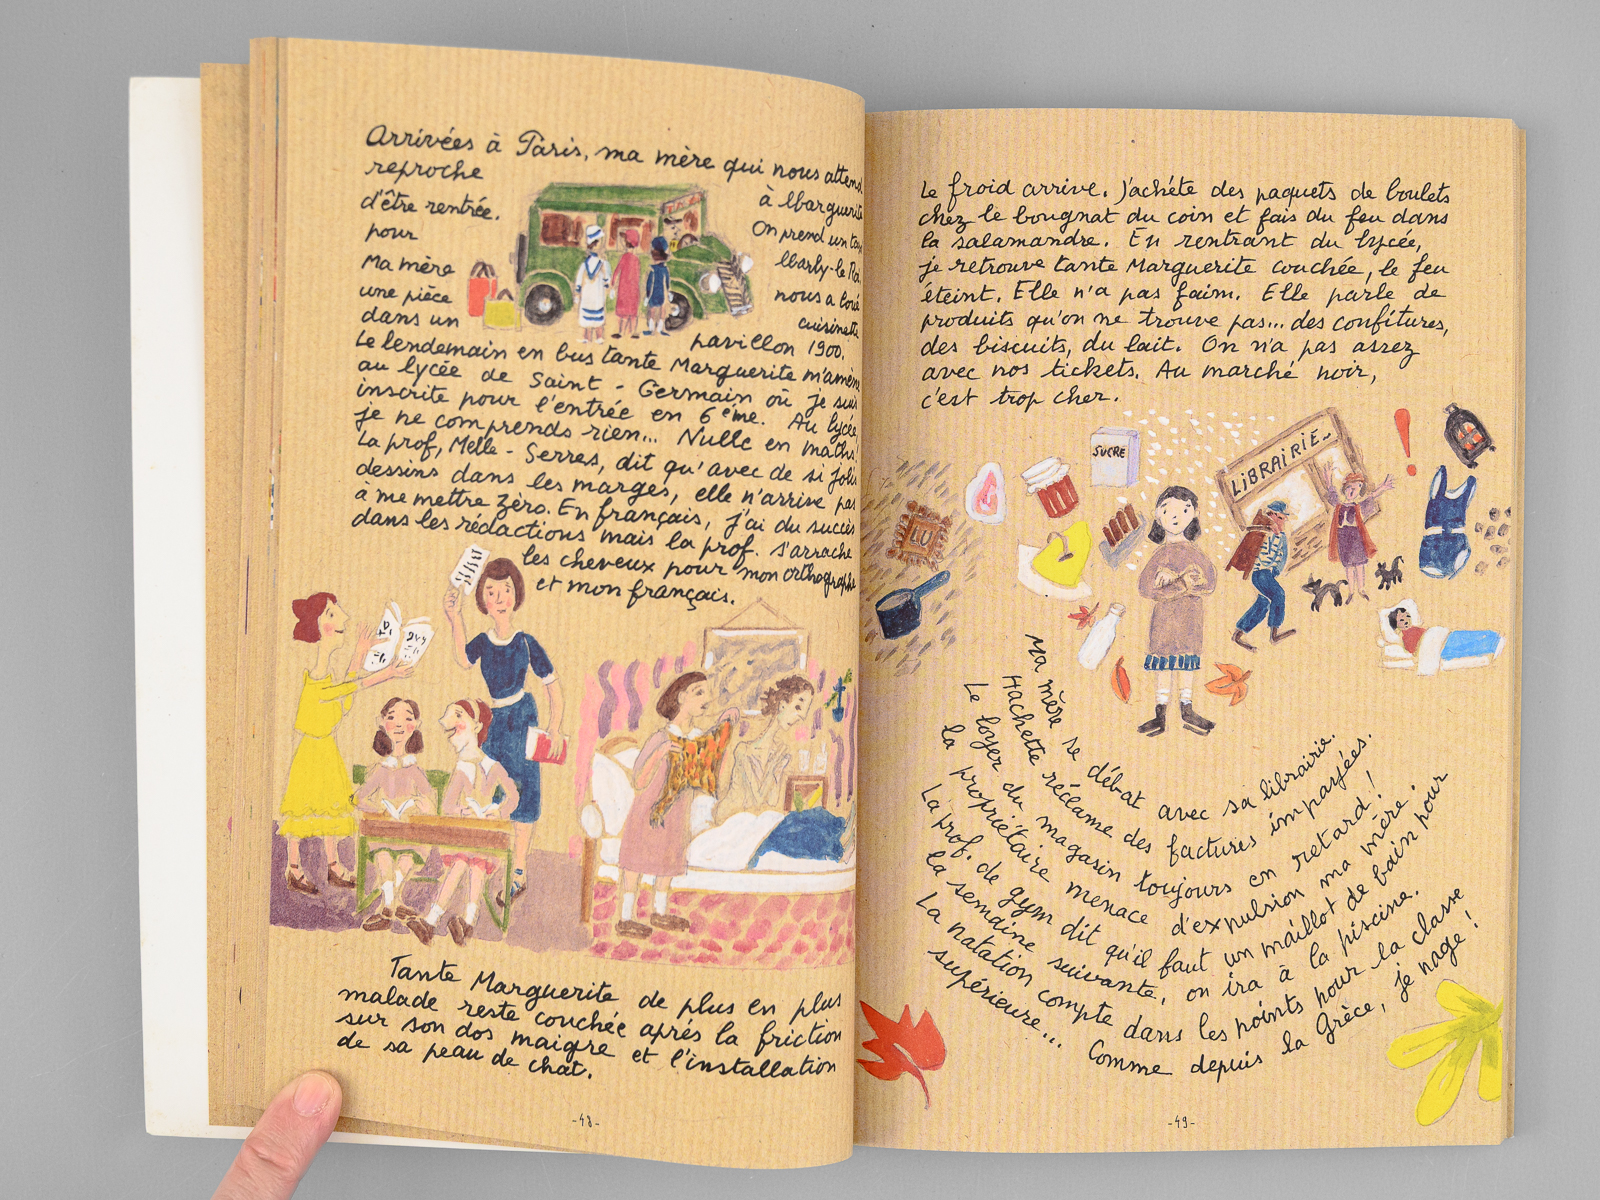 Arrivées à Paris, ma mère qui nous attend
reproche à Marguerite
d'être rentrée. On prend un tax
pour Marly-le-Roi.
Ma mère nous a loué
une pièce cuisinette
dans un pavillon 1900.
Le lendemain en bus tante Marguerite m'amène
au lycée de Saint-Germain où je suis
inscrite pour l'entrée en 6ème. Au lycée,
je ne comprends rien... Nulle en maths!
La prof, Melle-Serres, dit qu'avec de si jolis
dessins dans les marges, elle n'arrive pas
à me mettre zéro. En français, j'ai du succès
dans les rédactions mais la prof. s'arrache
les cheveux pour mon orthographe
et mon français.
Tante Marguerite de plus en plus
malade reste couchée après la friction
sur son dos maigre et l'installation
de sa peau de chat.
-48-
Le froid arrive. J'achéte des paquets de boulets
chez le bougnat du coin et fais du feu dans
la salamandre. En rentrant du lycée,
je retrouve tante Marguerite couchée, le feu
éteint. Elle n'a pas faim. Elle parle de
produits qu'on ne trouve pas... des confitures,
des biscuits, du lait. On n'a pas assez
avec nos tickets. Au marché noir,
c'est trop cher.
SUCRE
LIBRAIRIE
LU
Ma mère se débat avec sa librairie.
Hachette réclame des factures impayées.
Le loyer du magasin toujours en retard!
la propriétaire menace d'expulsion ma mère.
La prof. de gym dit qu'il faut un maillot de bain pour
la semaine suivante, on ira à la piscine.
La natation compte dans les points pour la classe
supérieure... Comme depuis la Grèce, je nage!
-49-